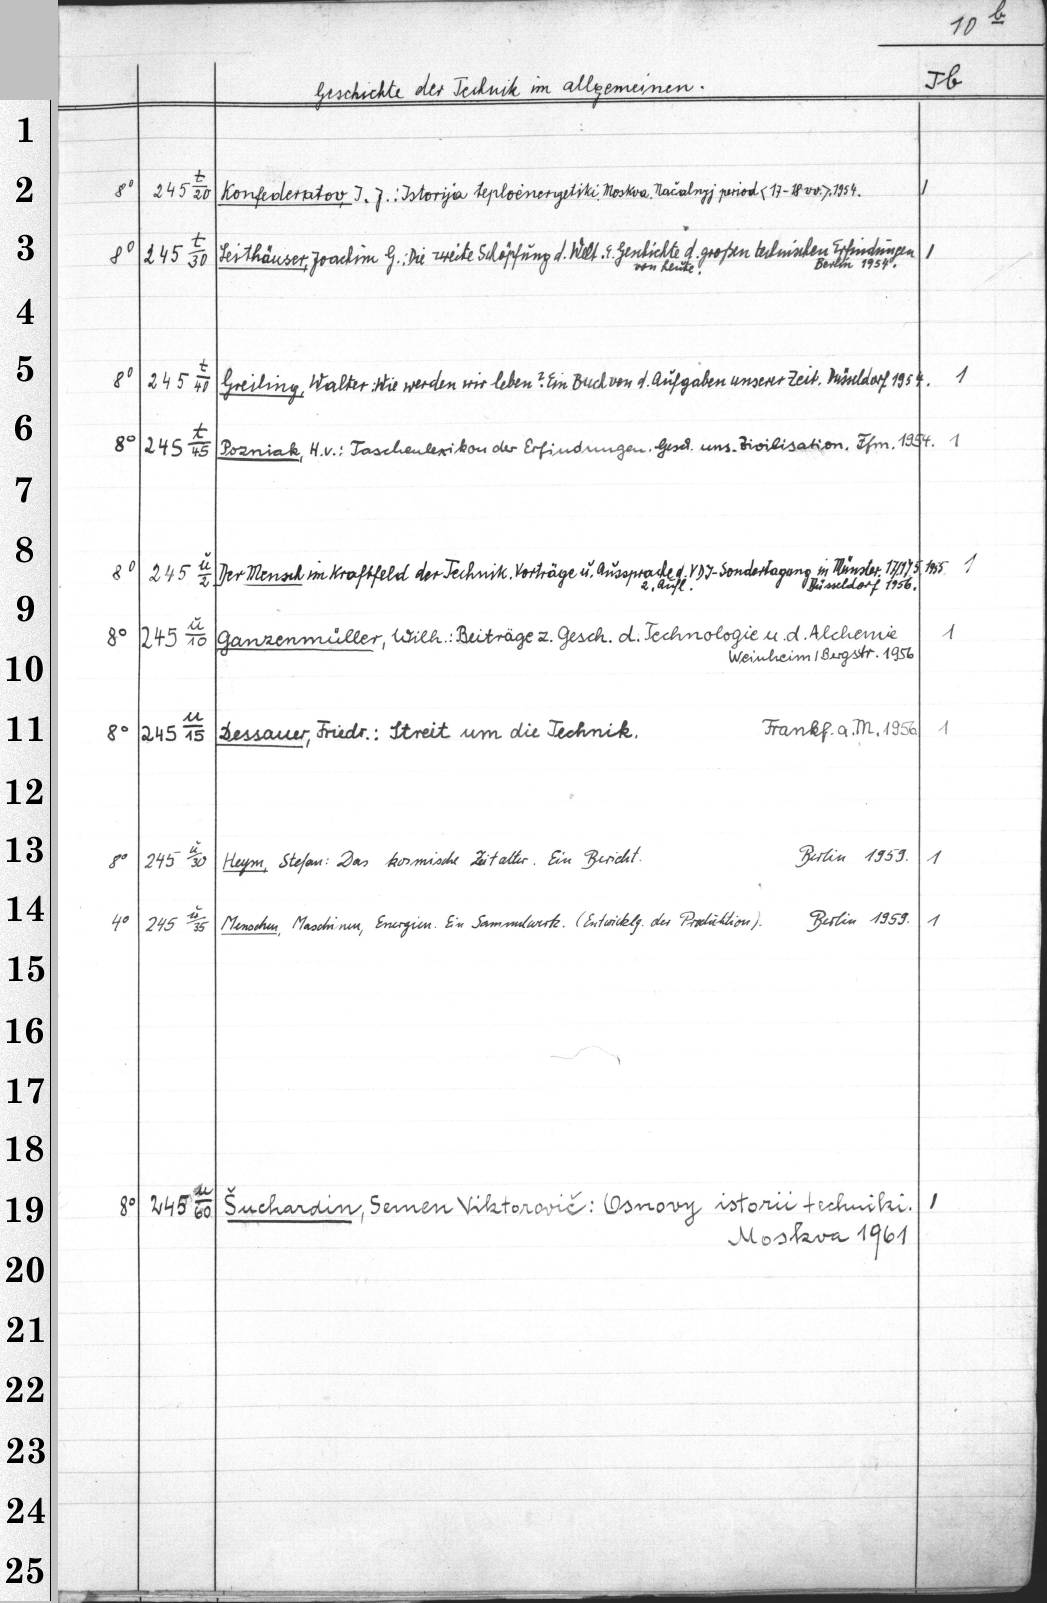 10 b
Geschichte der Technik im allgemeinen. Ib
1
2 8° 245 t/20 Konfederatov, I. J.: Istorija teploėnergetiki. Moskva. Načalnyj period <17-18 vv.>. 1954. 1
3 8° 245 t/30 Leithäuser, Joachim G.: Die zweite Schöpfung d. Welt. E. Geschichte d. großen technischen Erfindungen 1
von heute. Berlin 1954.
4
5 8° 245 t/40 Greiling, Walter: Wie werden wir leben? Ein Buch von d. Aufgaben unserer Zeit. Düsseldorf 1954. 1
6 8° 245 t/45 Pozniak, H.v.: Taschenlexikon der Erfindungen. Gesch. uns. Zivilisation. Ffm. 1954. 1
7
8 8° 245 u/2 Der Mensch im Kraftfeld der Technik. Vorträge u. Aussprache d. VDI-Sondertagung in Münster. 1955 1
2. Aufl. Düsseldorf 1956.
9
8° 245 u/10 Ganzenmüller, Wilh.: Beiträge z. Gesch. d. Technologie u. d. Alchemie 1
10 Weinheim/Bergstr. 1956
11 8° 245 u/15 Dessauer, Friedr.: Streit um die Technik. Frankf. a. M. 1956 1
12
13 8° 245 u/30 Heym, Stefan: Das kosmische Zeitalter. Ein Bericht. Berlin 1959. 1
14 4° 245 u/35 Menschen, Maschinen, Energien. Ein Sammelwerk. (Entwicklg. der Produktion). Berlin 1959. 1
15
16
17
18
19 8° 245 u/60 Šuchardin, Semen Viktorovič: Osnovy istorii techniki. 1
Moskva 1961
20
21
22
23
24
25